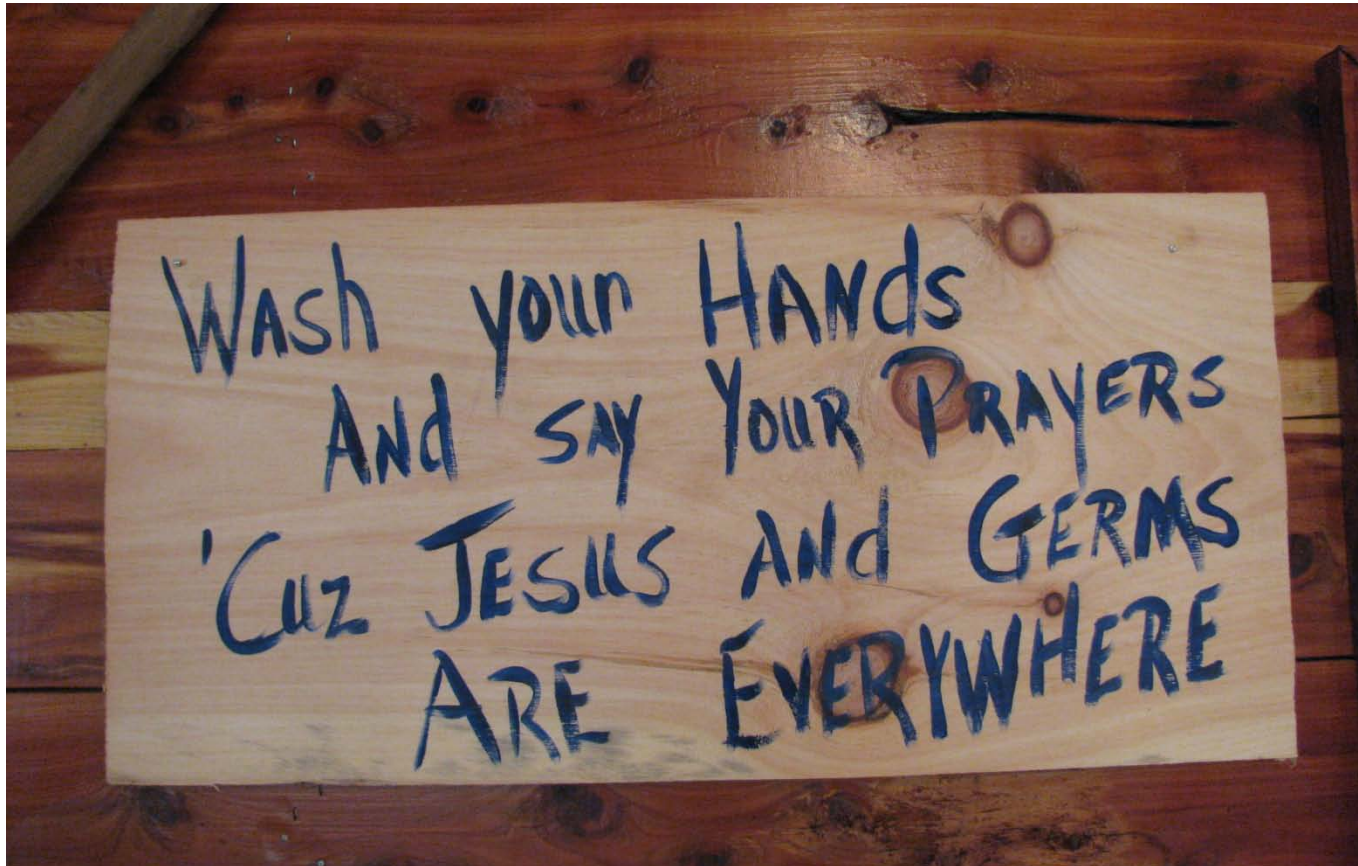 Wash your Hands
And say Your Prayers
'Cuz Jesus and Germs
Are Everywhere